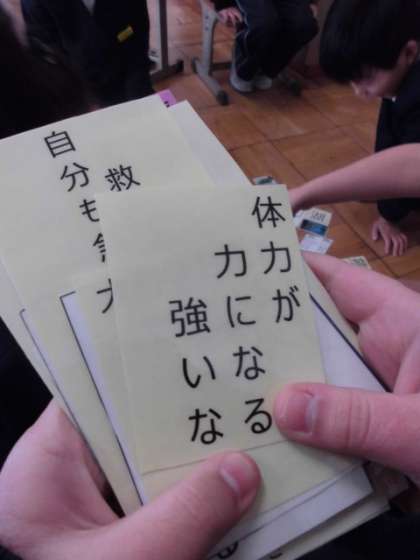 体力が
力になる
強いな
救
自分も